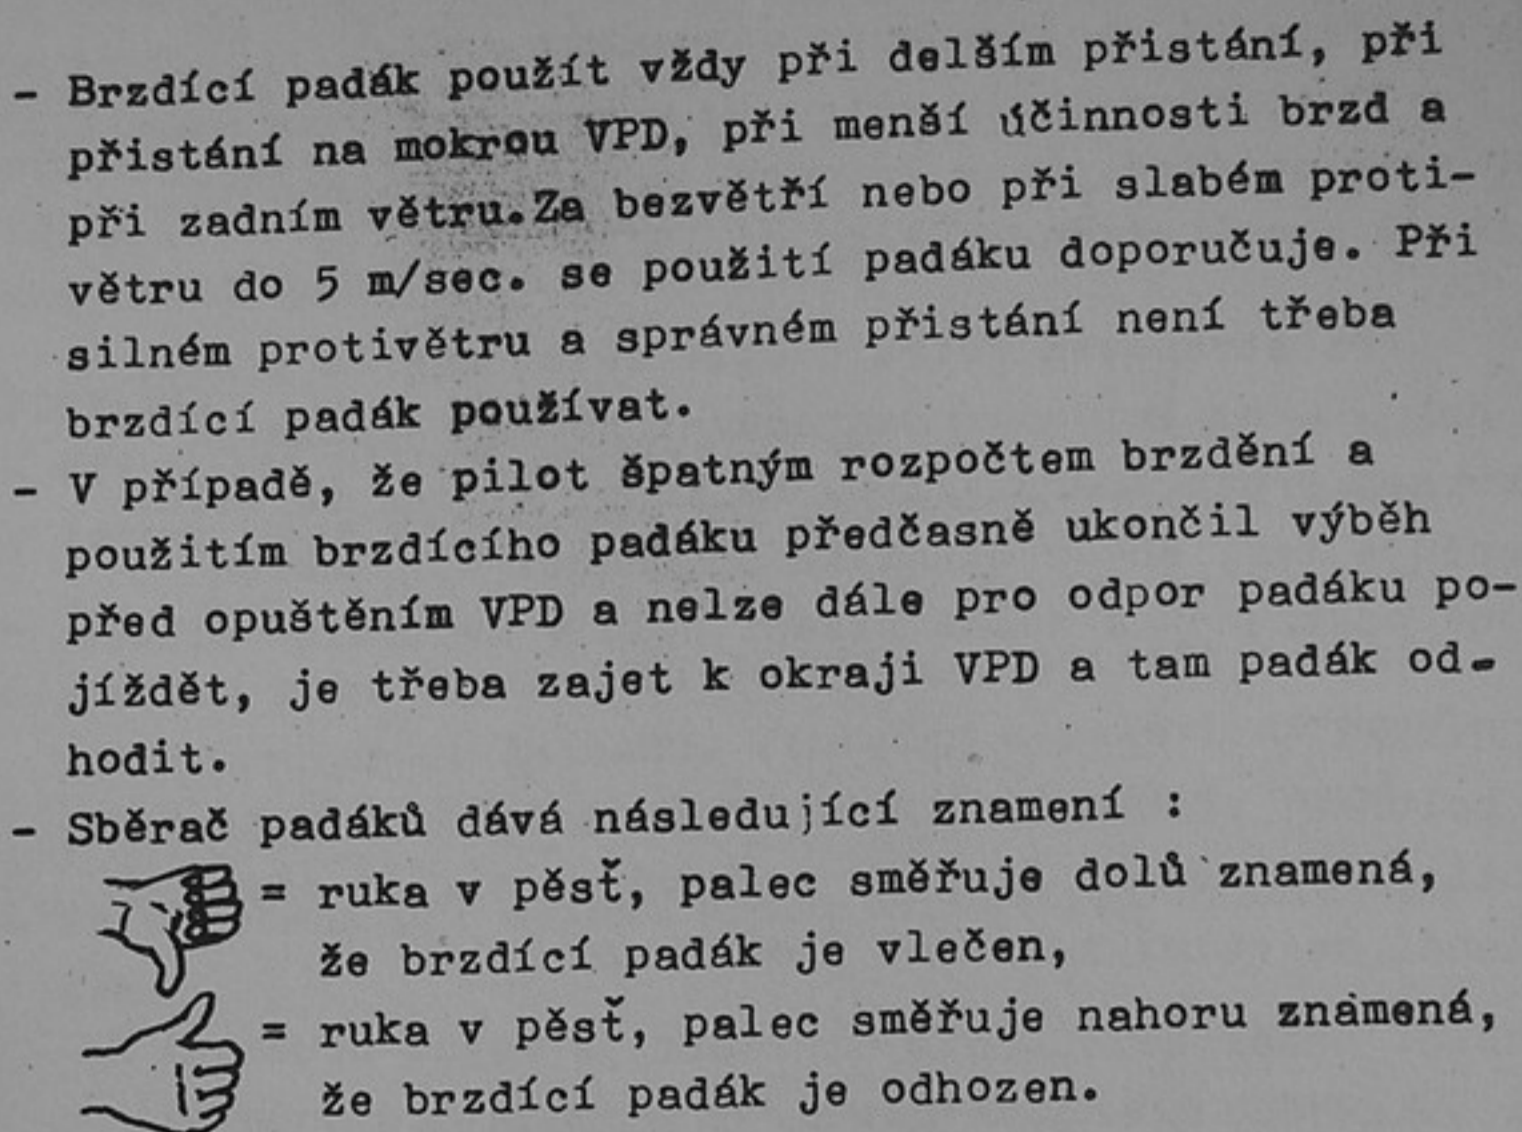 - Brzdící padák použít vždy při delším přistání, při
přistání na mokrou VPD, při menší účinnosti brzd a
při zadním větru.Za bezvětří nebo při slabém proti-
větru do 5 m/sec. se použití padáku doporučuje. Při
silném protivětru a správném přistání není třeba
brzdící padák používat.
- V případě, že pilot špatným rozpočtem brzdění a
použitím brzdícího padáku předčasně ukončil výběh
před opuštěním VPD a nelze dále pro odpor padáku po-
jíždět, je třeba zajet k okraji VPD a tam padák od-
hodit.
- Sběrač padáků dává následující znamení :
= ruka v pěsť, palec směřuje dolů znamená,
že brzdící padák je vlečen,
= ruka v pěsť, palec směřuje nahoru znamená,
že brzdící padák je odhozen.